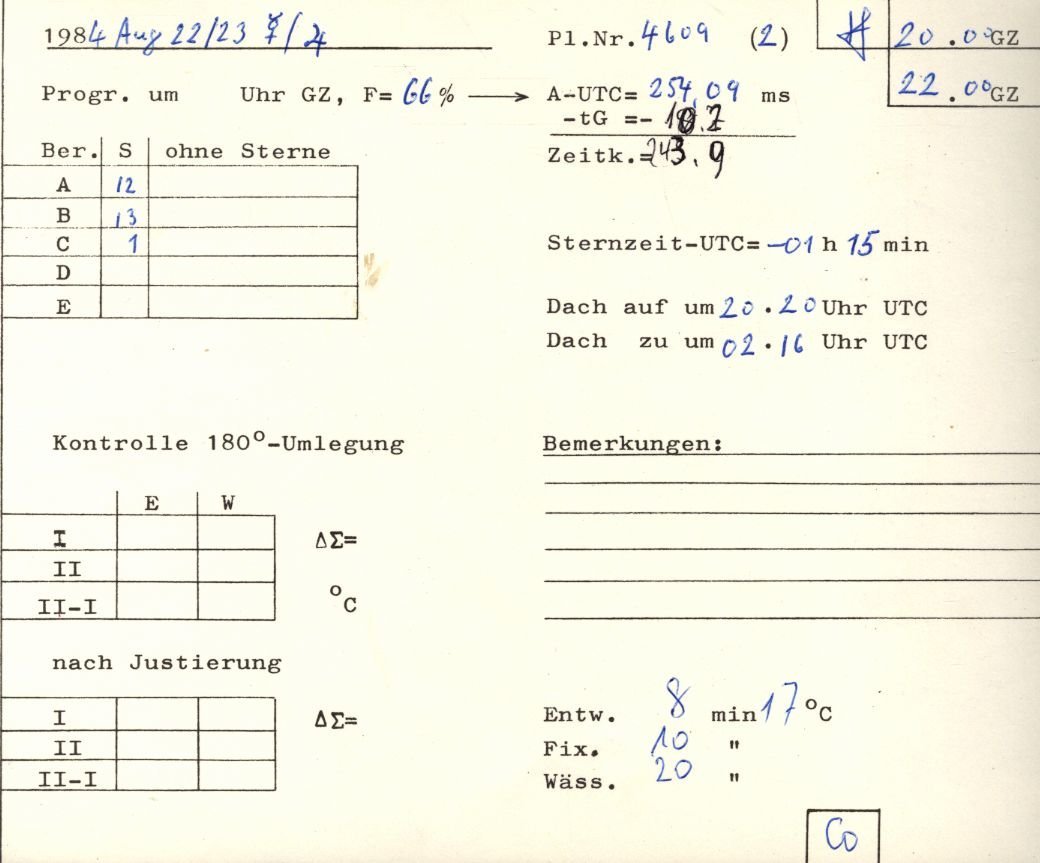 1984 Aug 22/23 ☿/♃ Pl.Nr. 4609 (2) 20.00 GZ
22.00 GZ
Progr. um Uhr GZ, F= 66 % → A-UTC= 254,09 ms
-tG =-
Zeitk.= 243.9
Ber. S ohne Sterne
A 12
B 13
C 1
D
E
Sternzeit-UTC= -01 h 15 min
Dach auf um 20.20 Uhr UTC
Dach zu um 02.16 Uhr UTC
Kontrolle 180°-Umlegung
E W
I ΔΣ=
II
II-I °C
nach Justierung
I ΔΣ=
II
II-I
Bemerkungen:
Entw. 8 min 17 °C
Fix. 10 "
Wäss. 20 "
Co